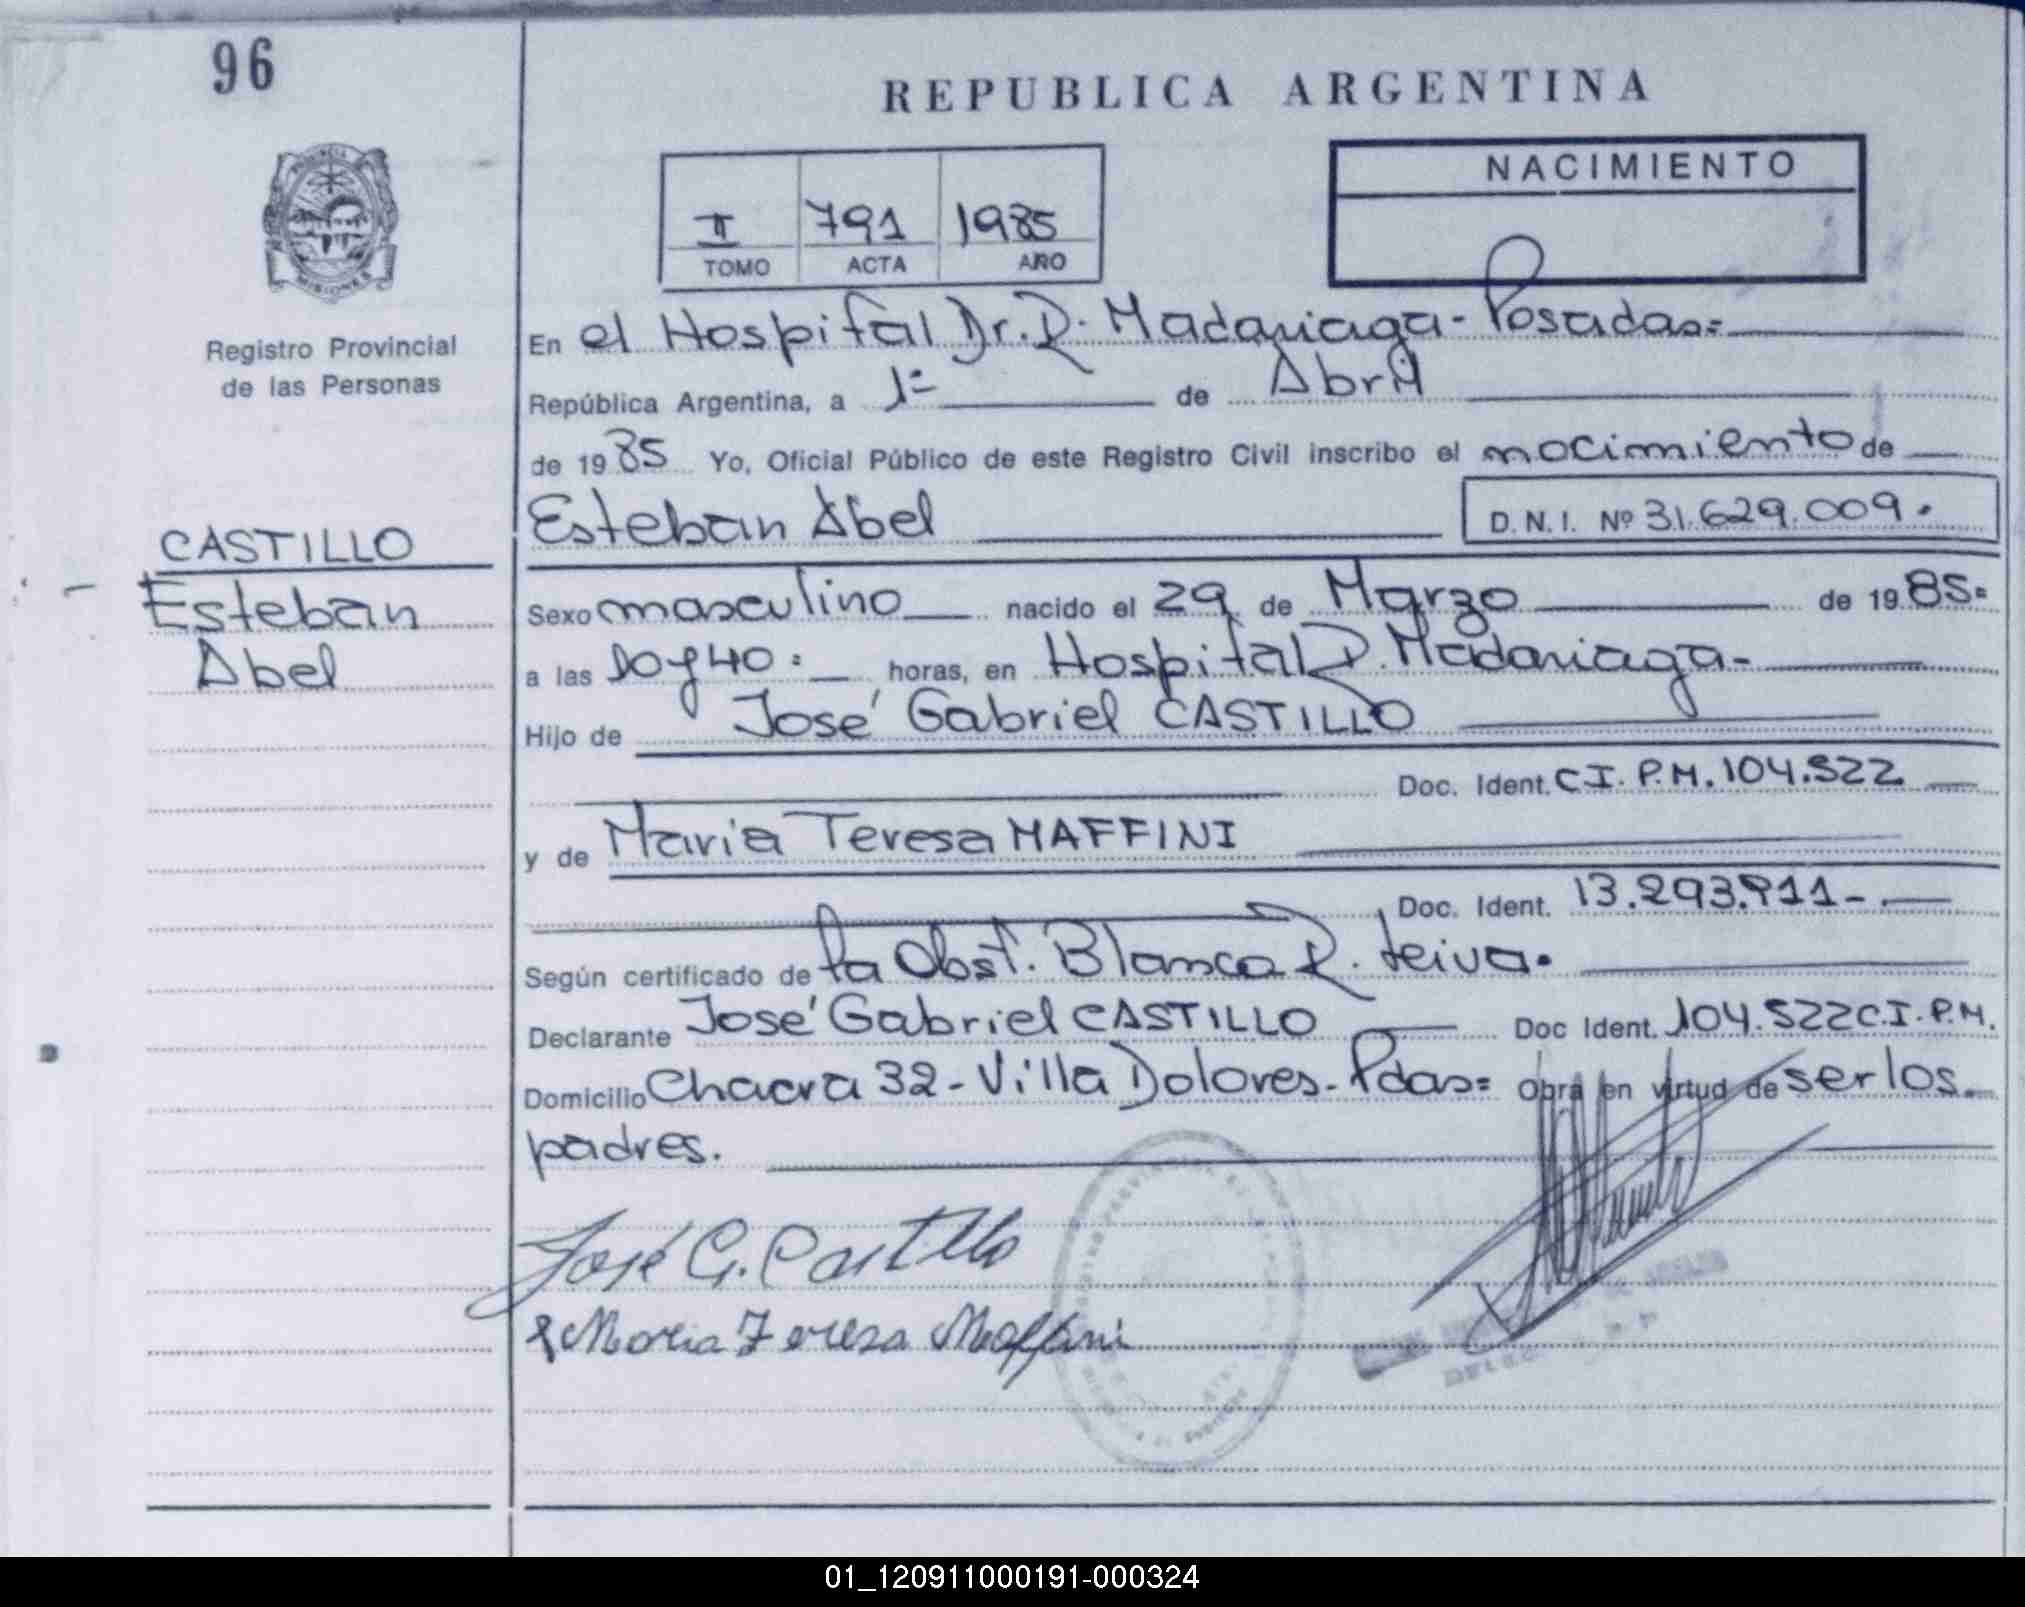 96
REPUBLICA ARGENTINA
NACIMIENTO
II 791 1985
TOMO ACTA AÑO
MISIONES
Registro Provincial
de las Personas
En el Hospital Dr. R. Madariaga - Posadas=
República Argentina, a 1º de Abril
de 1985 Yo, Oficial Público de este Registro Civil inscribo el nacimiento de
Esteban Abel D.N.I. Nº 31.629.009.
CASTILLO
Esteban
Abel
Sexo masculino nacido el 29 de Marzo de 1985=
a las 10 y 40= horas, en Hospital R. Madariaga-
Hijo de José Gabriel CASTILLO
Doc. Ident. C.I. P.M. 104.522
y de Maria Teresa MAFFINI
Doc. Ident. 13.293.911-.
Según certificado de la Obst. Blanca R. Leiva.
Declarante José Gabriel CASTILLO Doc Ident. 104.522 C.I. P.M.
Domicilio Chacra 32 - Villa Dolores - Pdas= Obra en virtud de ser los
padres.
José G. Castillo
Maria Teresa Maffini
01_120911000191-000324